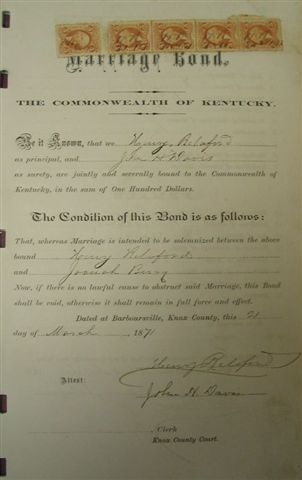 Marriage Bond.
THE COMMONWEALTH OF KENTUCKY.
Be it Known, that we Henry Helsford
as principal, and John H Davis
as surety, are jointly and severally bound to the Commonwealth of
Kentucky, in the sum of One Hundred Dollars.
The Condition of this Bond is as follows:
That, whereas Marriage is intended to be solemnized between the above
bound Henry Helsford
and
Now, if there is no lawful cause to obstruct said Marriage, this Bond
shall be void, otherwise it shall remain in full force and effect.
Dated at Barboursville, Knox County, this 21
day of March 1871
Henry Helsford
John H. Davis
Attest:
, Clerk
Knox County Court.